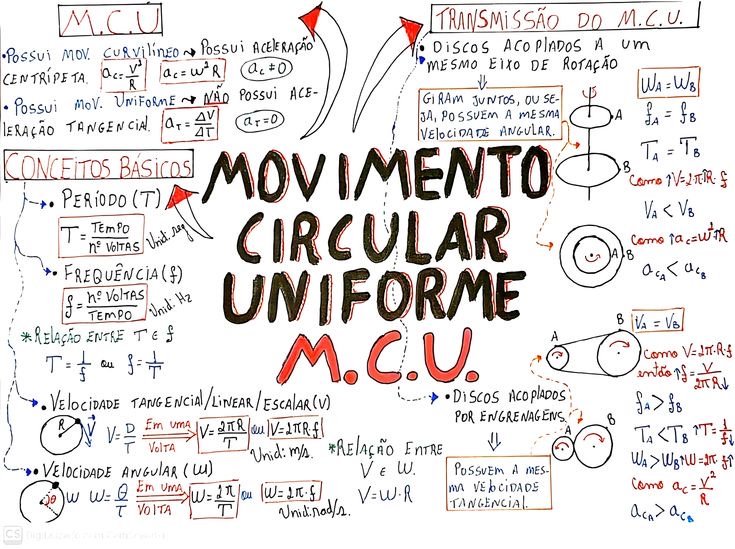 M.C.U
• POSSUI MOV. CURVILÍNEO ⤳ POSSUI ACELERAÇÃO
CENTRÍPETA. ac = V²/R  ac = ω²R  ac ≠ 0
• POSSUI MOV. UNIFORME ⤳ NÃO POSSUI ACE-
LERAÇÃO TANGENCIAL. aT = ΔV/ΔT  aT = 0
CONCEITOS BÁSICOS
• PERÍODO (T)
T = TEMPO/Nº VOLTAS Unid: seg
• FREQUÊNCIA (f)
f = Nº VOLTAS/TEMPO Unid: Hz
* RELAÇÃO ENTRE T E f
T = 1/f ou f = 1/T
MOVIMENTO
CIRCULAR
UNIFORME
M.C.U.
• VELOCIDADE TANGENCIAL/LINEAR/ESCALAR (V)
R V V = D/T EM UMA VOLTA V = 2πR/T ou V = 2πR.f
Unid: m/s.
• VELOCIDADE ANGULAR (W)
2π W W = θ/T EM UMA VOLTA W = 2π/T ou W = 2π.f
Unid: rad/s.
* RELAÇÃO ENTRE
V E W.
V = W.R
TRANSMISSÃO DO M.C.U.
• DISCOS ACOPLADOS A UM
MESMO EIXO DE ROTAÇÃO
GIRAM JUNTOS, OU SE-
JA, POSSUEM A MESMA
VELOCIDADE ANGULAR.
A
B
A B
WA = WB
fA = fB
TA = TB
Como ↑V = 2π↑R.f
VA < VB
Como ↑ac = W²↑R
acA < acB
• DISCOS ACOPLADOS
POR ENGRENAGENS
POSSUEM A MES-
MA VELOCIDADE
TANGENCIAL.
A B
A B
VA = VB
Como V = 2π.R.f
então ↑f = V/2πR↓
fA > fB
TA < TB ↑T = 1/f↓
WA > WB ↑W = 2π.f↑
Como ac = V²/R
acA > acB
CS